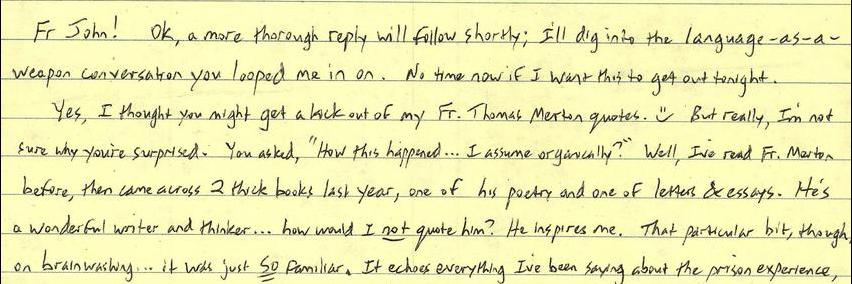 Fr John! Ok, a more thorough reply will follow shortly; I'll dig into the language-as-a-
weapon conversation you looped me in on. No time now if I want this to get out tonight.
Yes, I thought you might get a kick out of my Fr. Thomas Merton quotes. But really, I'm not
sure why you're surprised. You asked, "How this happened... I assume organically?" Well, I've read Fr. Merton
before, then came across 2 thick books last year, one of his poetry and one of letters & essays. He's
a wonderful writer and thinker... how would I not quote him? He inspires me. That particular bit, though,
on brainwashing... it was just SO familiar. It echoes everything I've been saying about the prison experience,